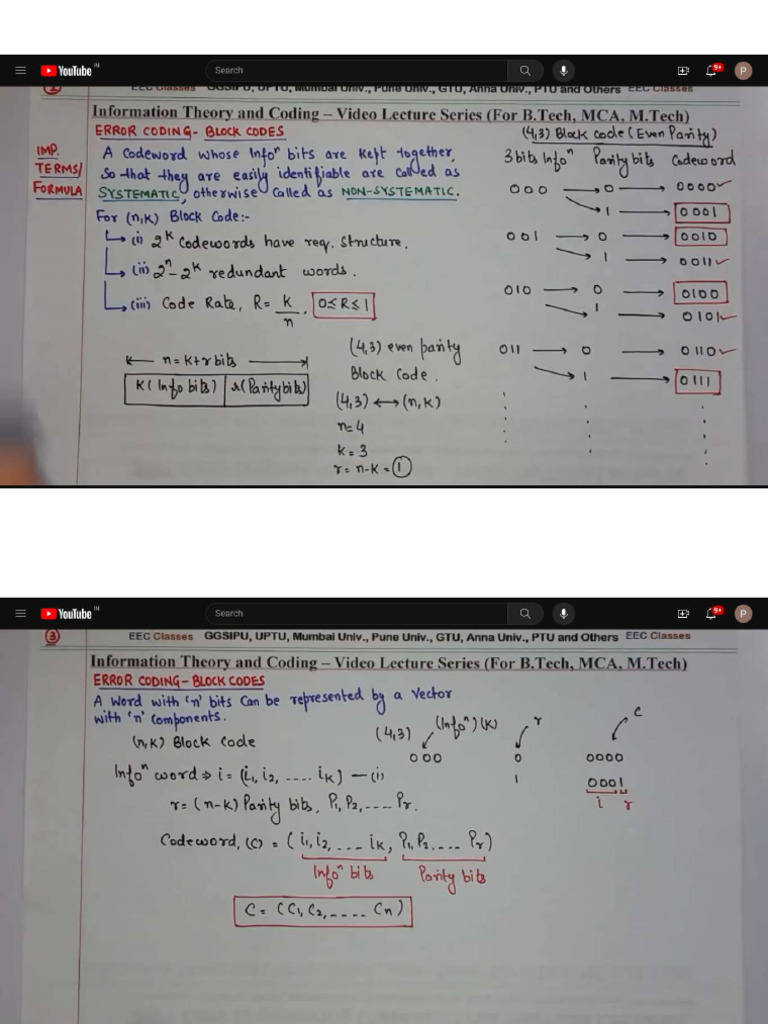 YouTube IN
Search
9+
P
EEC Classes GGSIPU, UPTU, Mumbai Univ., Pune Univ., GTU, Anna Univ., PTU and Others EEC Classes
Information Theory and Coding – Video Lecture Series (For B.Tech, MCA, M.Tech)
ERROR CODING- BLOCK CODES
IMP.
TERMS/
FORMULA
A Codeword whose Infoⁿ bits are kept together,
So that they are easily identifiable are called as
SYSTEMATIC, otherwise called as NON-SYSTEMATIC.
For (n,K) Block Code:-
(i) 2^k Codewords have req. structure.
(ii) 2^n - 2^k redundant words.
(iii) Code Rate, R= k/n, 0≤R≤1
n=k+r bits
K(Info bits) r(Parity bits)
(4,3) even parity
Block Code.
(4,3) ↔ (n,k)
n=4
k=3
r=n-k=1
(4,3) Block code (Even Parity)
3 bits Infoⁿ Parity bits Codeword
000 → 0 → 0000 ✓
1 → 0001
001 → 0 → 0010
1 → 0011 ✓
010 → 0 → 0100
1 → 0101 ✓
011 → 0 → 0110 ✓
1 → 0111
YouTube IN
Search
9+
P
3
EEC Classes GGSIPU, UPTU, Mumbai Univ., Pune Univ., GTU, Anna Univ., PTU and Others EEC Classes
Information Theory and Coding – Video Lecture Series (For B.Tech, MCA, M.Tech)
ERROR CODING-BLOCK CODES
A Word with 'n' bits Can be represented by a Vector
with 'n' Components.
(n,K) Block Code
Infoⁿ word ⇒ i = (i₁, i₂, .... iK) — (i)
r=(n-K) Parity bits, P₁, P₂, .... Pr.
Codeword, (C) = (i₁, i₂, .... iK, P₁, P₂, .... Pr)
Infoⁿ bits Parity bits
C = (C₁, C₂, ..... Cn)
(4,3) (Infoⁿ)(K) r C
000 0 0000
1 0001
i r